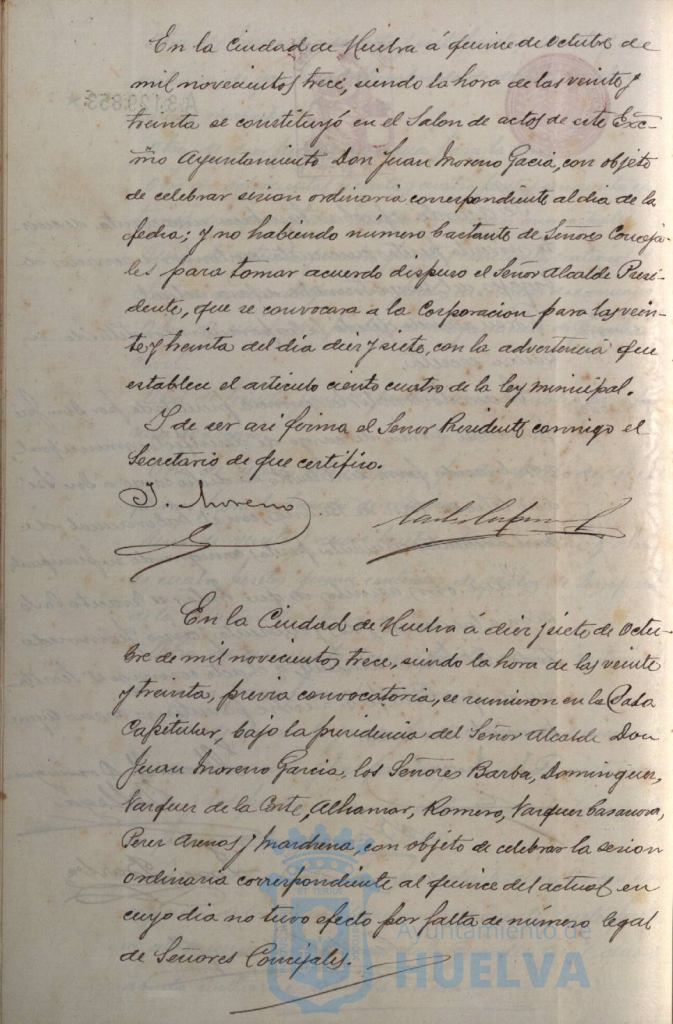 En la Ciudad de Huelva á quince de Octubre de
mil novecientos trece, siendo la hora de las veinte y
treinta se constituyó en el Salon de actos de este Exc-
mo Ayuntamiento Don Juan Moreno Gacia, con objeto
de celebrar sesion ordinaria correspondiente al dia de la
fecha; y no habiendo número bastante de Señores Conceja-
les para tomar acuerdo dispuso el Señor Alcalde Presi-
dente, que se convocara a la Corporacion para las vein-
te y treinta del dia diez y siete, con la advertencia que
establece el articulo ciento cuatro de la ley municipal.
Y de ser asi firma el Señor Presidente conmigo el
Secretario de que certifico.
J. Moreno
En la Ciudad de Huelva á diez y siete de Octu-
bre de mil novecientos trece, siendo la hora de las veinte
y treinta, previa convocatoria, se reunieron en la Casa
Capitular, bajo la presidencia del Señor Alcalde Don
Juan Moreno Garcia, los Señores Barba, Dominguez,
Vazquez de la Corte, Alhamar, Romero, Vazquez Casanova,
Perez Arenas y Marchena, con objeto de celebrar la sesion
ordinaria correspondiente al quince del actual en
cuyo dia no tuvo efecto por falta de número legal
de Señores Concejales.
Ayuntamiento de
HUELVA